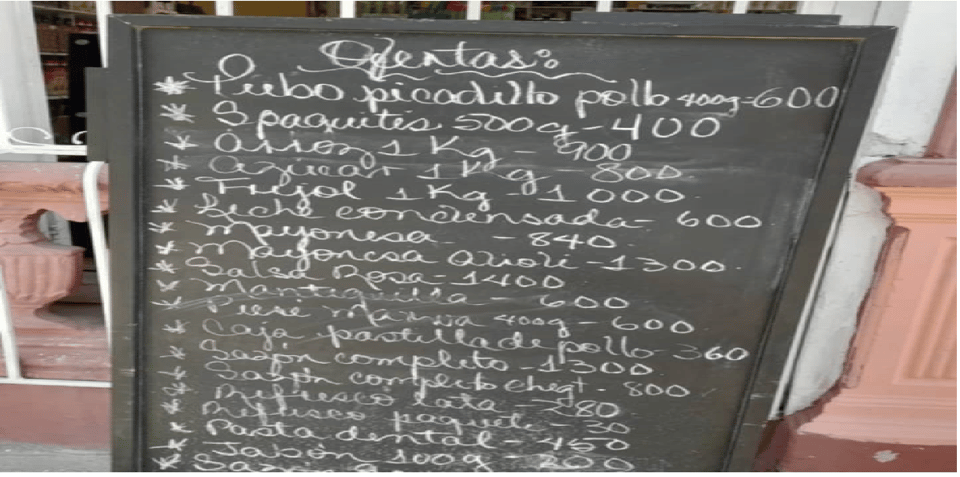 Ofertas:
* Tubo picadillo pollo 400g=600
* Spaquitis 500g-400
* Arroz 1 Kg - 900
* Azúcar 1 Kg - 800
* Frijol 1 Kg - 1000
* Leche condensada- 600
* Mayonesa - 840
* Mayonesa alioli -1300
* Salsa Rosa-1400
* Mantequilla - 600
* 400g - 600
* Caja pastilla de pollo-360
* Sazón completo -1300
* Sazón completo - 800
* Refresco lata - 280
* Refresco paquete - 30
* Pasta dental - 450
* Jabón 100g - 200